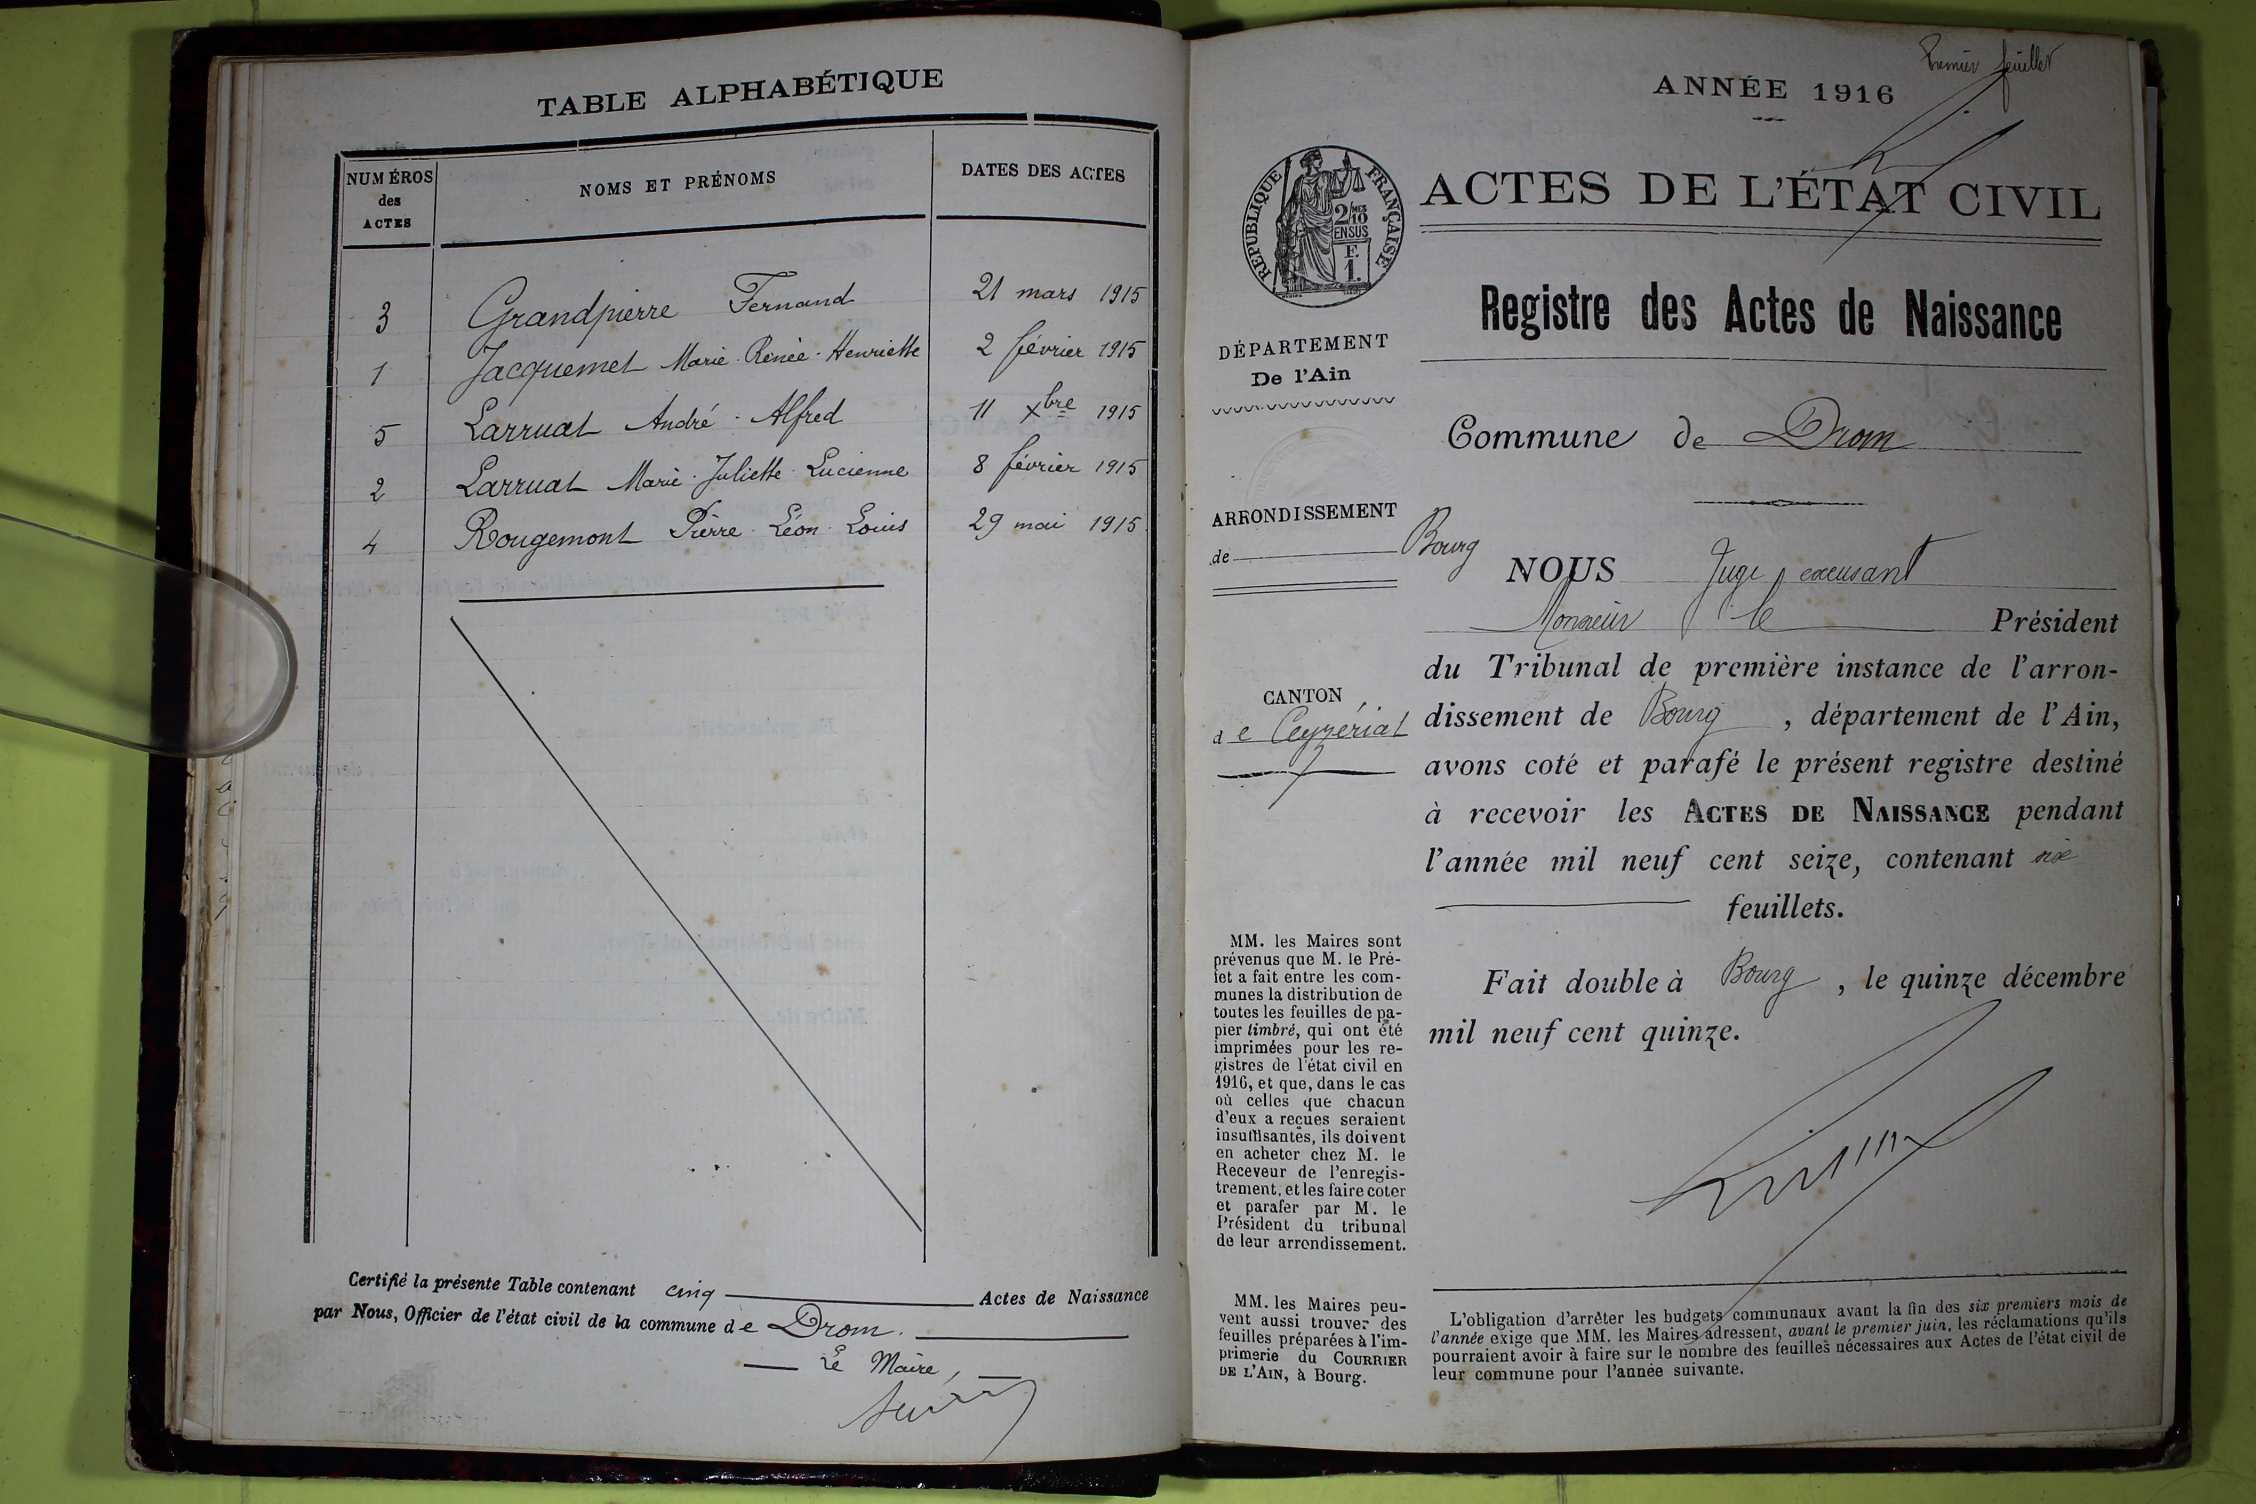 TABLE ALPHABÉTIQUE
NUMÉROS des ACTES NOMS ET PRÉNOMS DATES DES ACTES
3 Grandpierre Fernand 21 mars 1915
1 Jacquemet Marie-Renée-Henriette 2 février 1915
5 Larruat André-Alfred 11 Xbre 1915
2 Larruat Marie-Juliette-Lucienne 8 février 1915
4 Rougemont Pierre-Léon-Louis 29 mai 1915
Certifié la présente Table contenant cinq Actes de Naissance
par Nous, Officier de l'état civil de la commune de Drom.
Le Maire,
Premier feuillet
ANNÉE 1916
ACTES DE L'ÉTAT CIVIL
RÉPUBLIQUE FRANÇAISE
2/10 MES
EN SUS
F.
1.
DÉPARTEMENT
De l'Ain
ARRONDISSEMENT
de Bourg
CANTON
de Ceyzériat
MM. les Maires sont
prévenus que M. le Pré-
fet a fait entre les com-
munes la distribution de
toutes les feuilles de pa-
pier timbré, qui ont été
imprimées pour les re-
gistres de l'état civil en
1916, et que, dans le cas
où celles que chacun
d'eux a reçues seraient
insuffisantes, ils doivent
en acheter chez M. le
Receveur de l'enregis-
trement, et les faire coter
et parafer par M. le
Président du tribunal
de leur arrondissement.
MM. les Maires peu-
vent aussi trouver des
feuilles préparées à l'im-
primerie du COURRIER
DE L'AIN, à Bourg.
Registre des Actes de Naissance
Commune de Drom
NOUS Juge excusant
Monsieur le Président
du Tribunal de première instance de l'arron-
dissement de Bourg, département de l'Ain,
avons coté et parafé le présent registre destiné
à recevoir les ACTES DE NAISSANCE pendant
l'année mil neuf cent seize, contenant six
feuillets.
Fait double à Bourg, le quinze décembre
mil neuf cent quinze.
L'obligation d'arrêter les budgets communaux avant la fin des six premiers mois de
l'année exige que MM. les Maires adressent, avant le premier juin, les réclamations qu'ils
pourraient avoir à faire sur le nombre des feuilles nécessaires aux Actes de l'état civil de
leur commune pour l'année suivante.